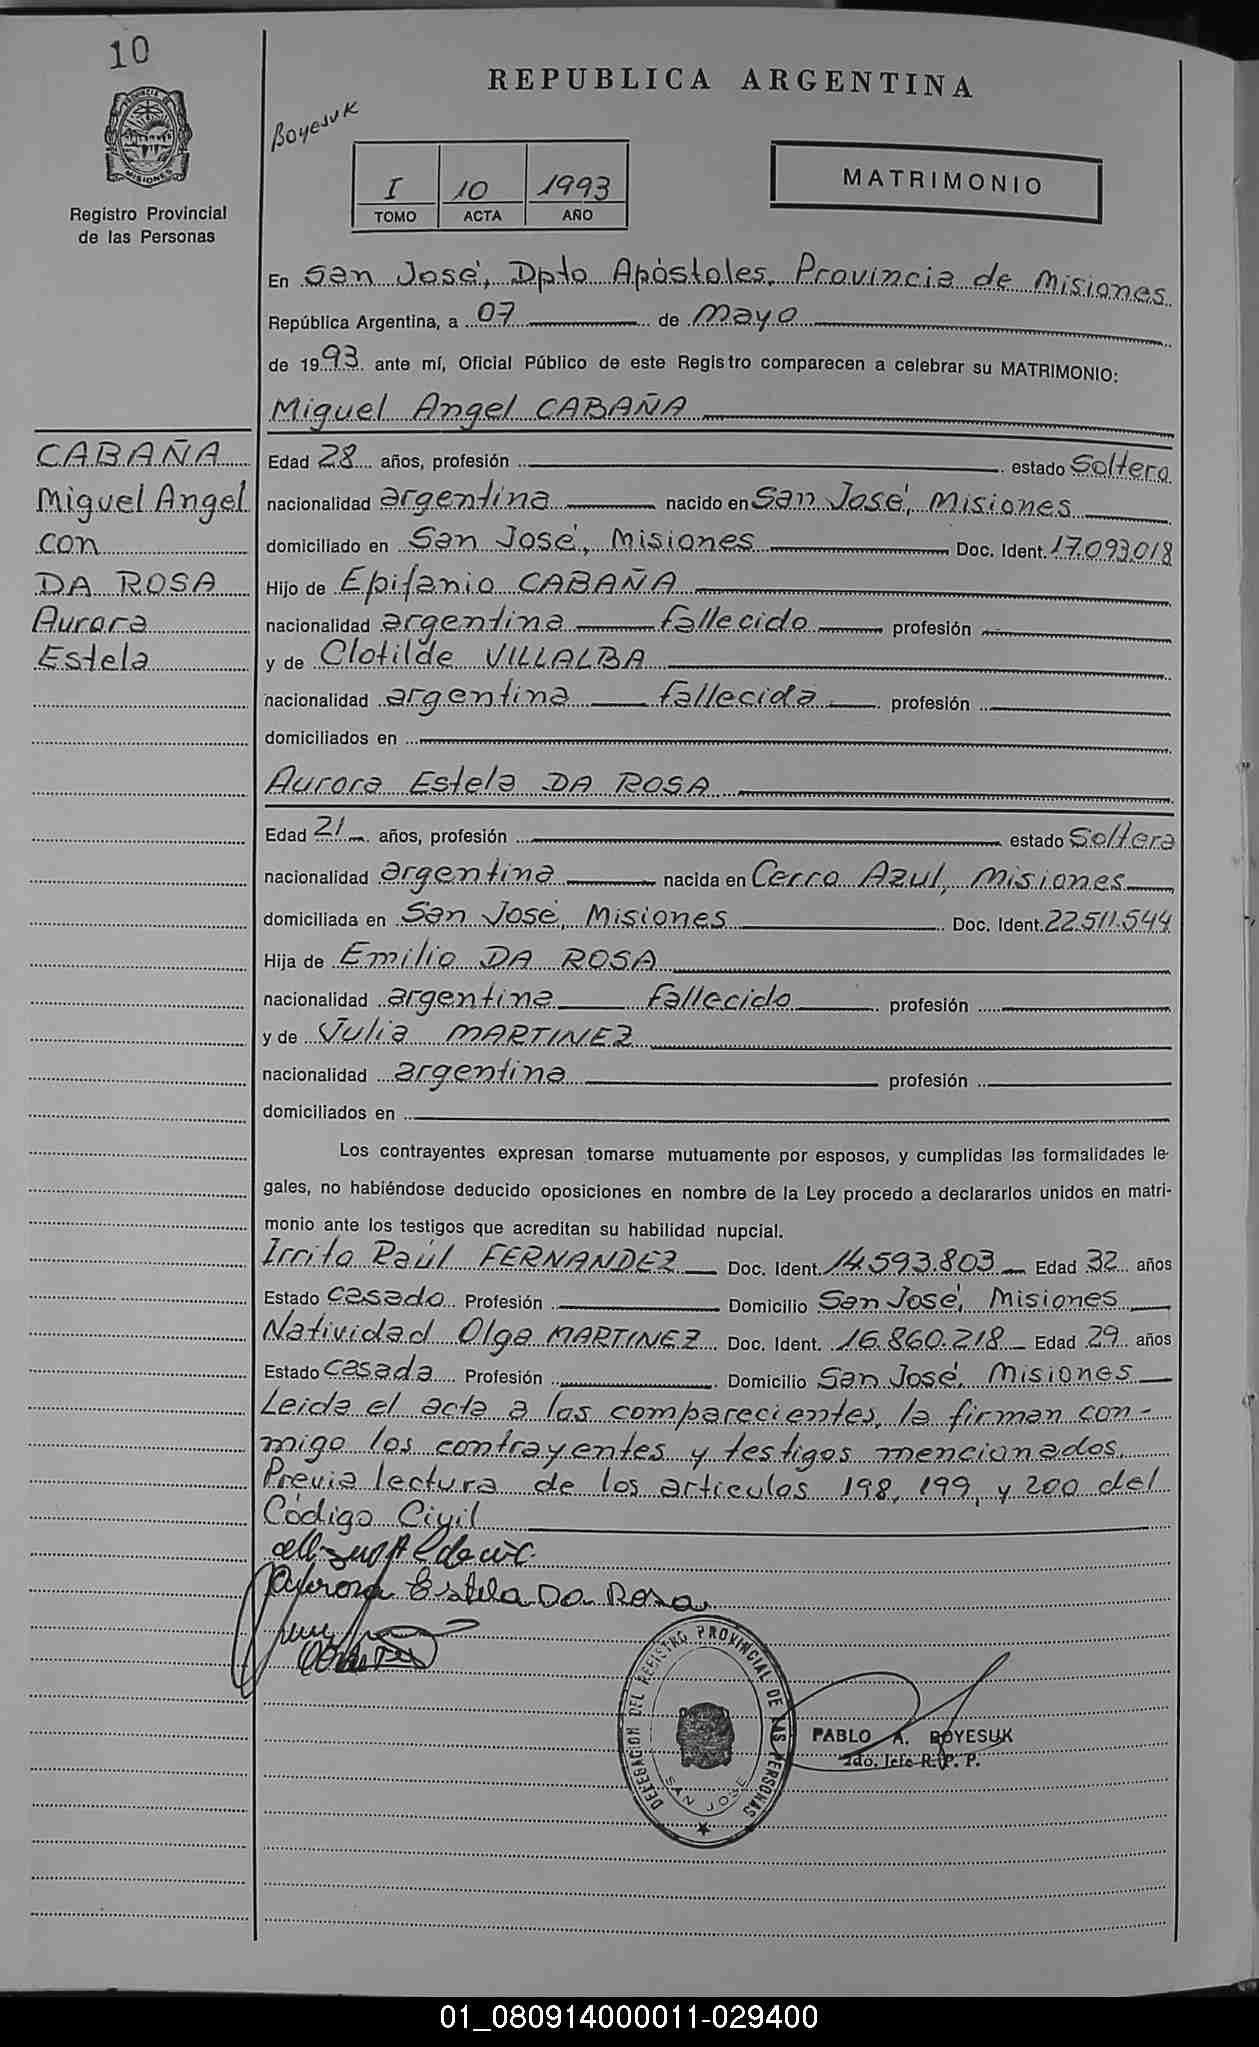 10
PROVINCIA DE
MISIONES
Registro Provincial
de las Personas
REPUBLICA ARGENTINA
Boyesuk
I 10 1993
TOMO ACTA AÑO
MATRIMONIO
En San José, Dpto Apóstoles, Provincia de Misiones
República Argentina, a 07 de Mayo
de 1993 ante mí, Oficial Público de este Registro comparecen a celebrar su MATRIMONIO:
Miguel Angel CABAÑA
CABAÑA
Miguel Angel
con
DA ROSA
Aurora
Estela
Edad 28 años, profesión estado Soltero
nacionalidad argentina nacido en San José, Misiones
domiciliado en San José, Misiones Doc. Ident. 17.093.018
Hijo de Epifanio CABAÑA
nacionalidad argentina fallecido profesión
y de Clotilde VILLALBA
nacionalidad argentina fallecida profesión
domiciliados en
Aurora Estela DA ROSA
Edad 21 años, profesión estado Soltera
nacionalidad argentina nacida en Cerro Azul, Misiones
domiciliada en San José, Misiones Doc. Ident. 22.511.544
Hija de Emilio DA ROSA
nacionalidad argentina fallecido profesión
y de Julia MARTINEZ
nacionalidad argentina profesión
domiciliados en
Los contrayentes expresan tomarse mutuamente por esposos, y cumplidas las formalidades le-
gales, no habiéndose deducido oposiciones en nombre de la Ley procedo a declararlos unidos en matri-
monio ante los testigos que acreditan su habilidad nupcial.
Irrito Raúl FERNANDEZ Doc. Ident. 14.593.803 Edad 32 años
Estado casado Profesión Domicilio San José, Misiones
Natividad Olga MARTINEZ Doc. Ident. 16.860.218 Edad 29 años
Estado casada Profesión Domicilio San José, Misiones
Leida el acta a los comparecientes, la firman con-
migo los contrayentes y testigos mencionados.
Previa lectura de los articulos 198, 199, y 200 del
Código Civil
Aurora Estela Da Rosa
DELEGACION DEL REGISTRO PROVINCIAL DE LAS PERSONAS
SAN JOSE
PABLO A. BOYESUK
2do. Jefe R. P. P.
01_080914000011-029400